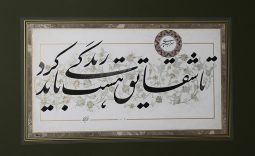 تا شقایق هست زندگی باید کرد